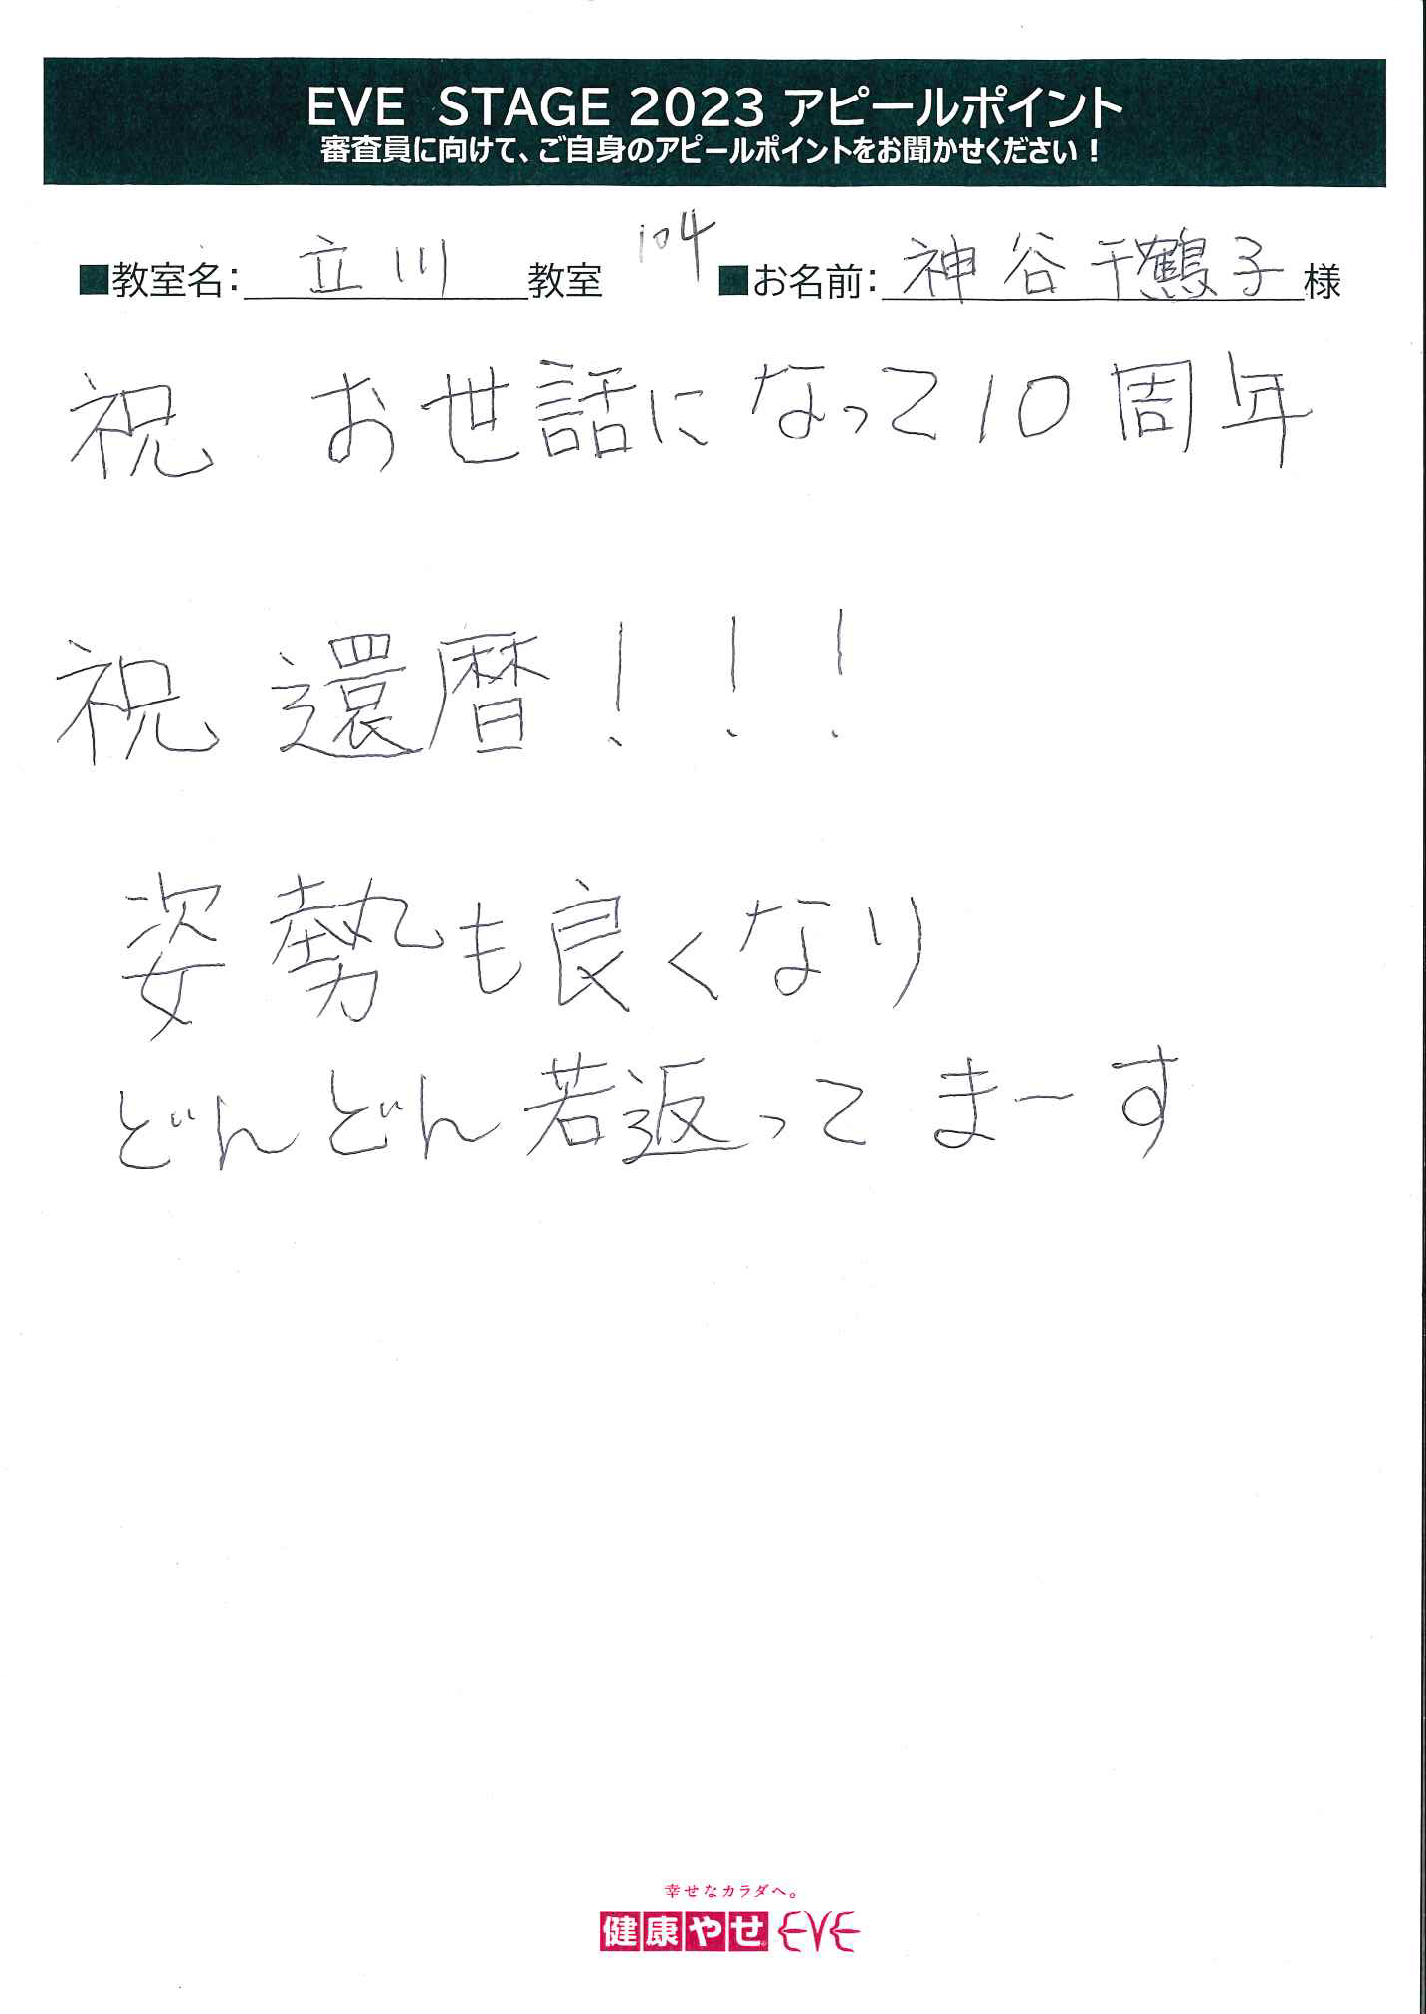 EVE STAGE 2023 アピールポイント
審査員に向けて、ご自身のアピールポイントをお聞かせください！
■教室名：立川教室 104 ■お名前：神谷千鶴子様
祝 お世話になって10周年
祝還暦！！！
姿勢も良くなり
どんどん若返ってまーす
幸せなカラダへ。
健康やせ EVE